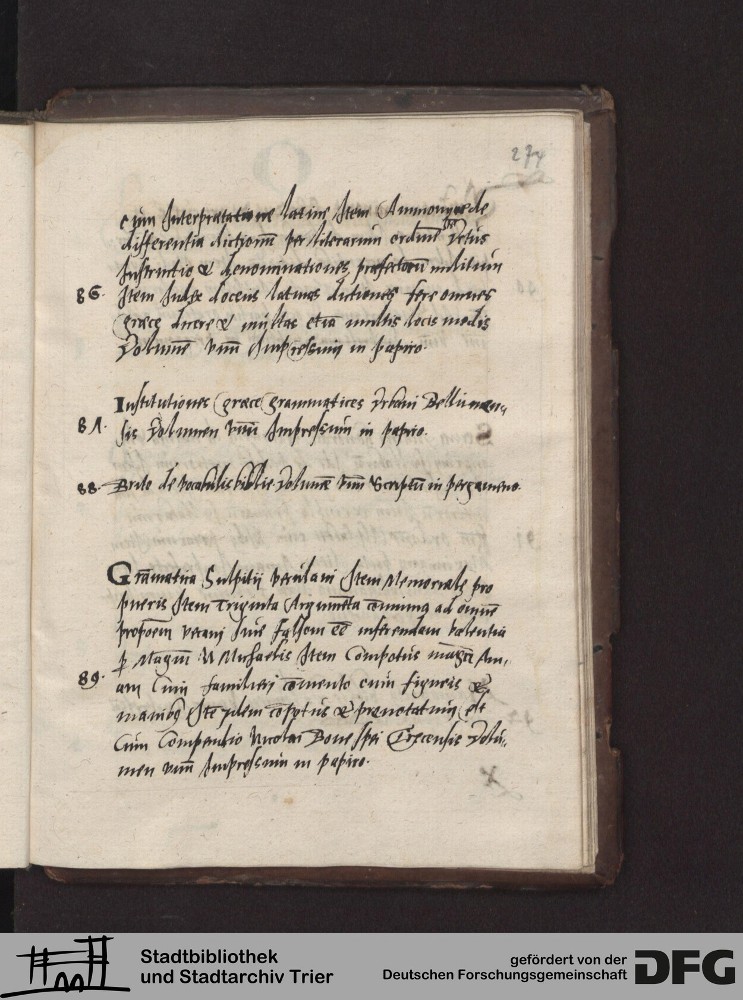 274
cum Interpretatione latine Item Ammonyus de
differentia dictionū per literarum ordinē de Vetus
Instructio & denominationes prefectorū militum
86. Item Index docens latinas dictiones fere omnes
græce dicere & multas etiā multis locis modis
Volumē vnū Impressum in papiro.
Institutiones græce grammatices Vrbani Bellunen„
87. sis Volumen vnū Impressum in papiro.
88. Brito de vocabulis biblie Volumē vnū Scriptū in pergameno.
Grāmatica Sulpitii verulani Item Memoriale pro
pueris Item Triginta Argumēta cōmunia ad omnē
propōem veram siue falsam eē inferendam valentia
p Magrm N Michaelis Item Compotus magrī An„
89. iani Cum familiari cōmento cum figuris &
manibq Ite ydem cōpotus & prenotatum est
Cum Compendio Nicolai Bone spei Trecensis Volu„
men vnū Impressum in papiro.
Stadtbibliothek
und Stadtarchiv Trier
gefördert von der
Deutschen Forschungsgemeinschaft
DFG